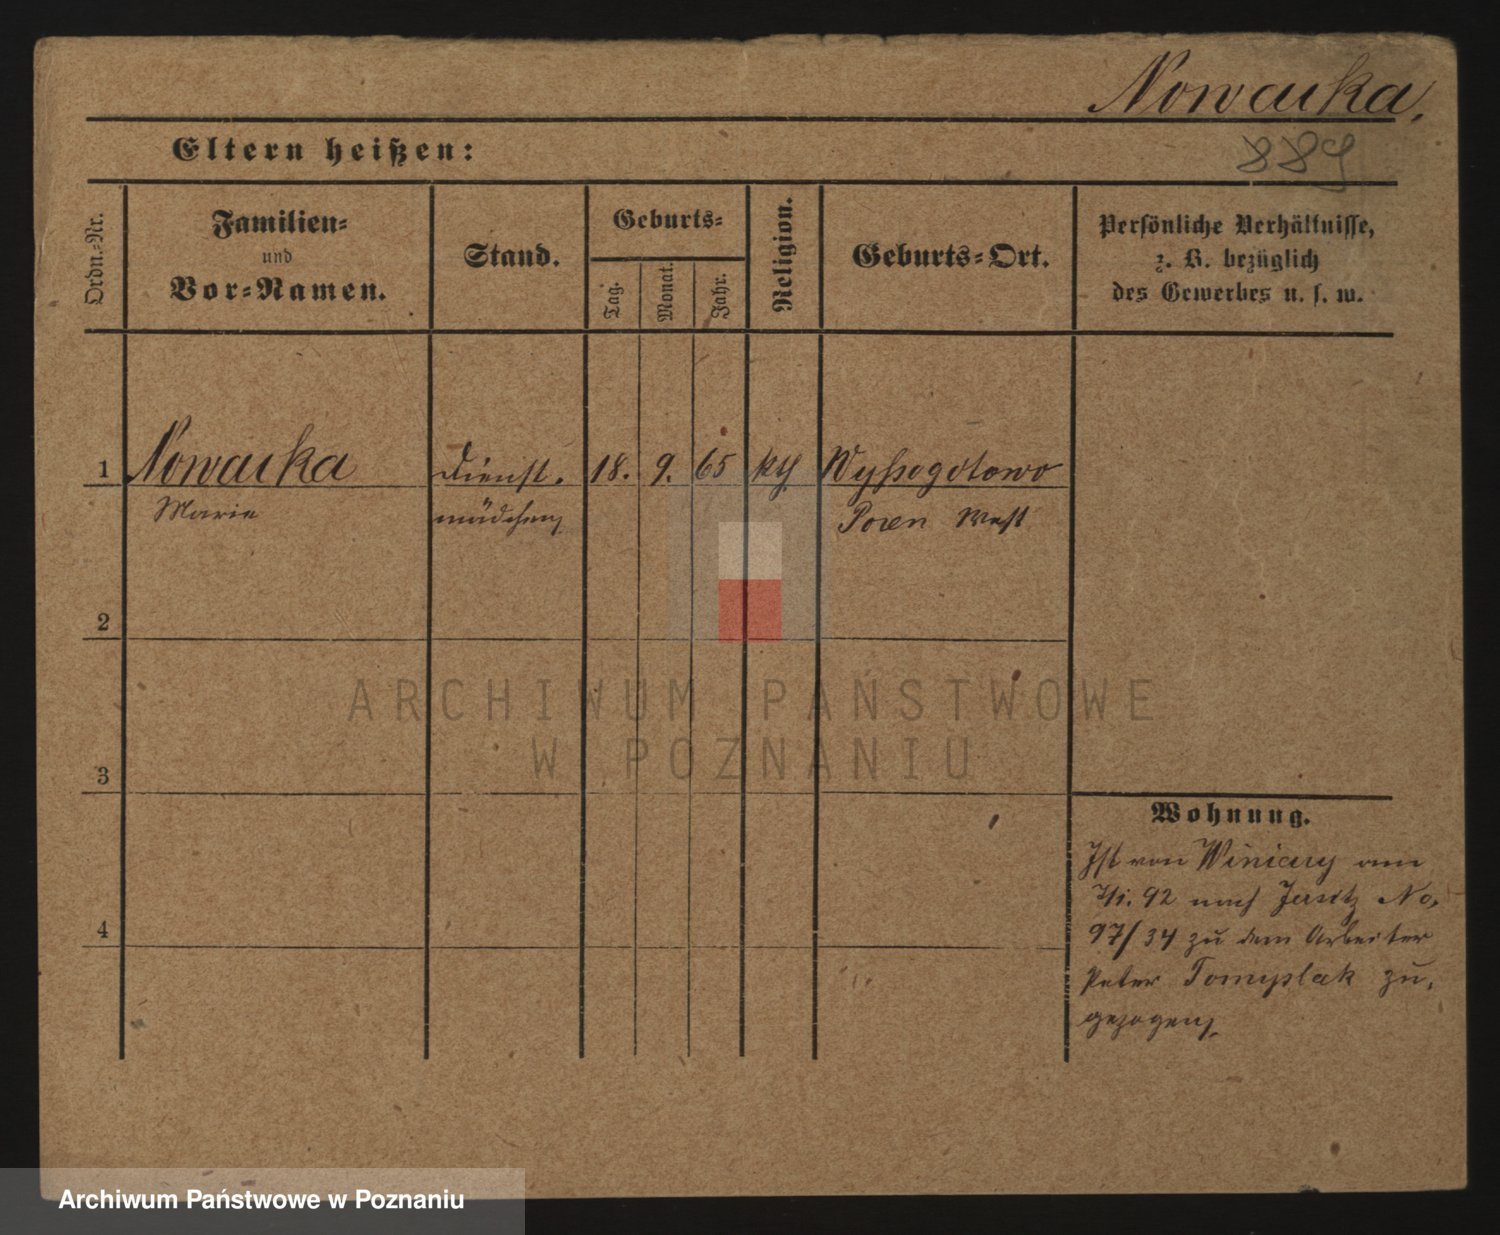 Nowacka.
889
Eltern heißen:
Ordn.-Nr.
Familien-
und
Vor-Namen.
Stand.
Geburts-
Tag.
Monat.
Jahr.
Religion.
Geburts-Ort.
Persönliche Verhältnisse,
z. B. bezüglich
des Gewerbes u. s. w.
1 Nowacka Dienst. 18. 9. 65 kth Wyssogotowo
Marie mädchen Posen West
2
3
4
Wohnung.
Ist von Winiary am
2/1. 92 nach Jersitz No.
97/34 zu dem Arbeiter
Peter zu,
gezogen.
ARCHIWUM PAŃSTWOWE
W POZNANIU
Archiwum Państwowe w Poznaniu